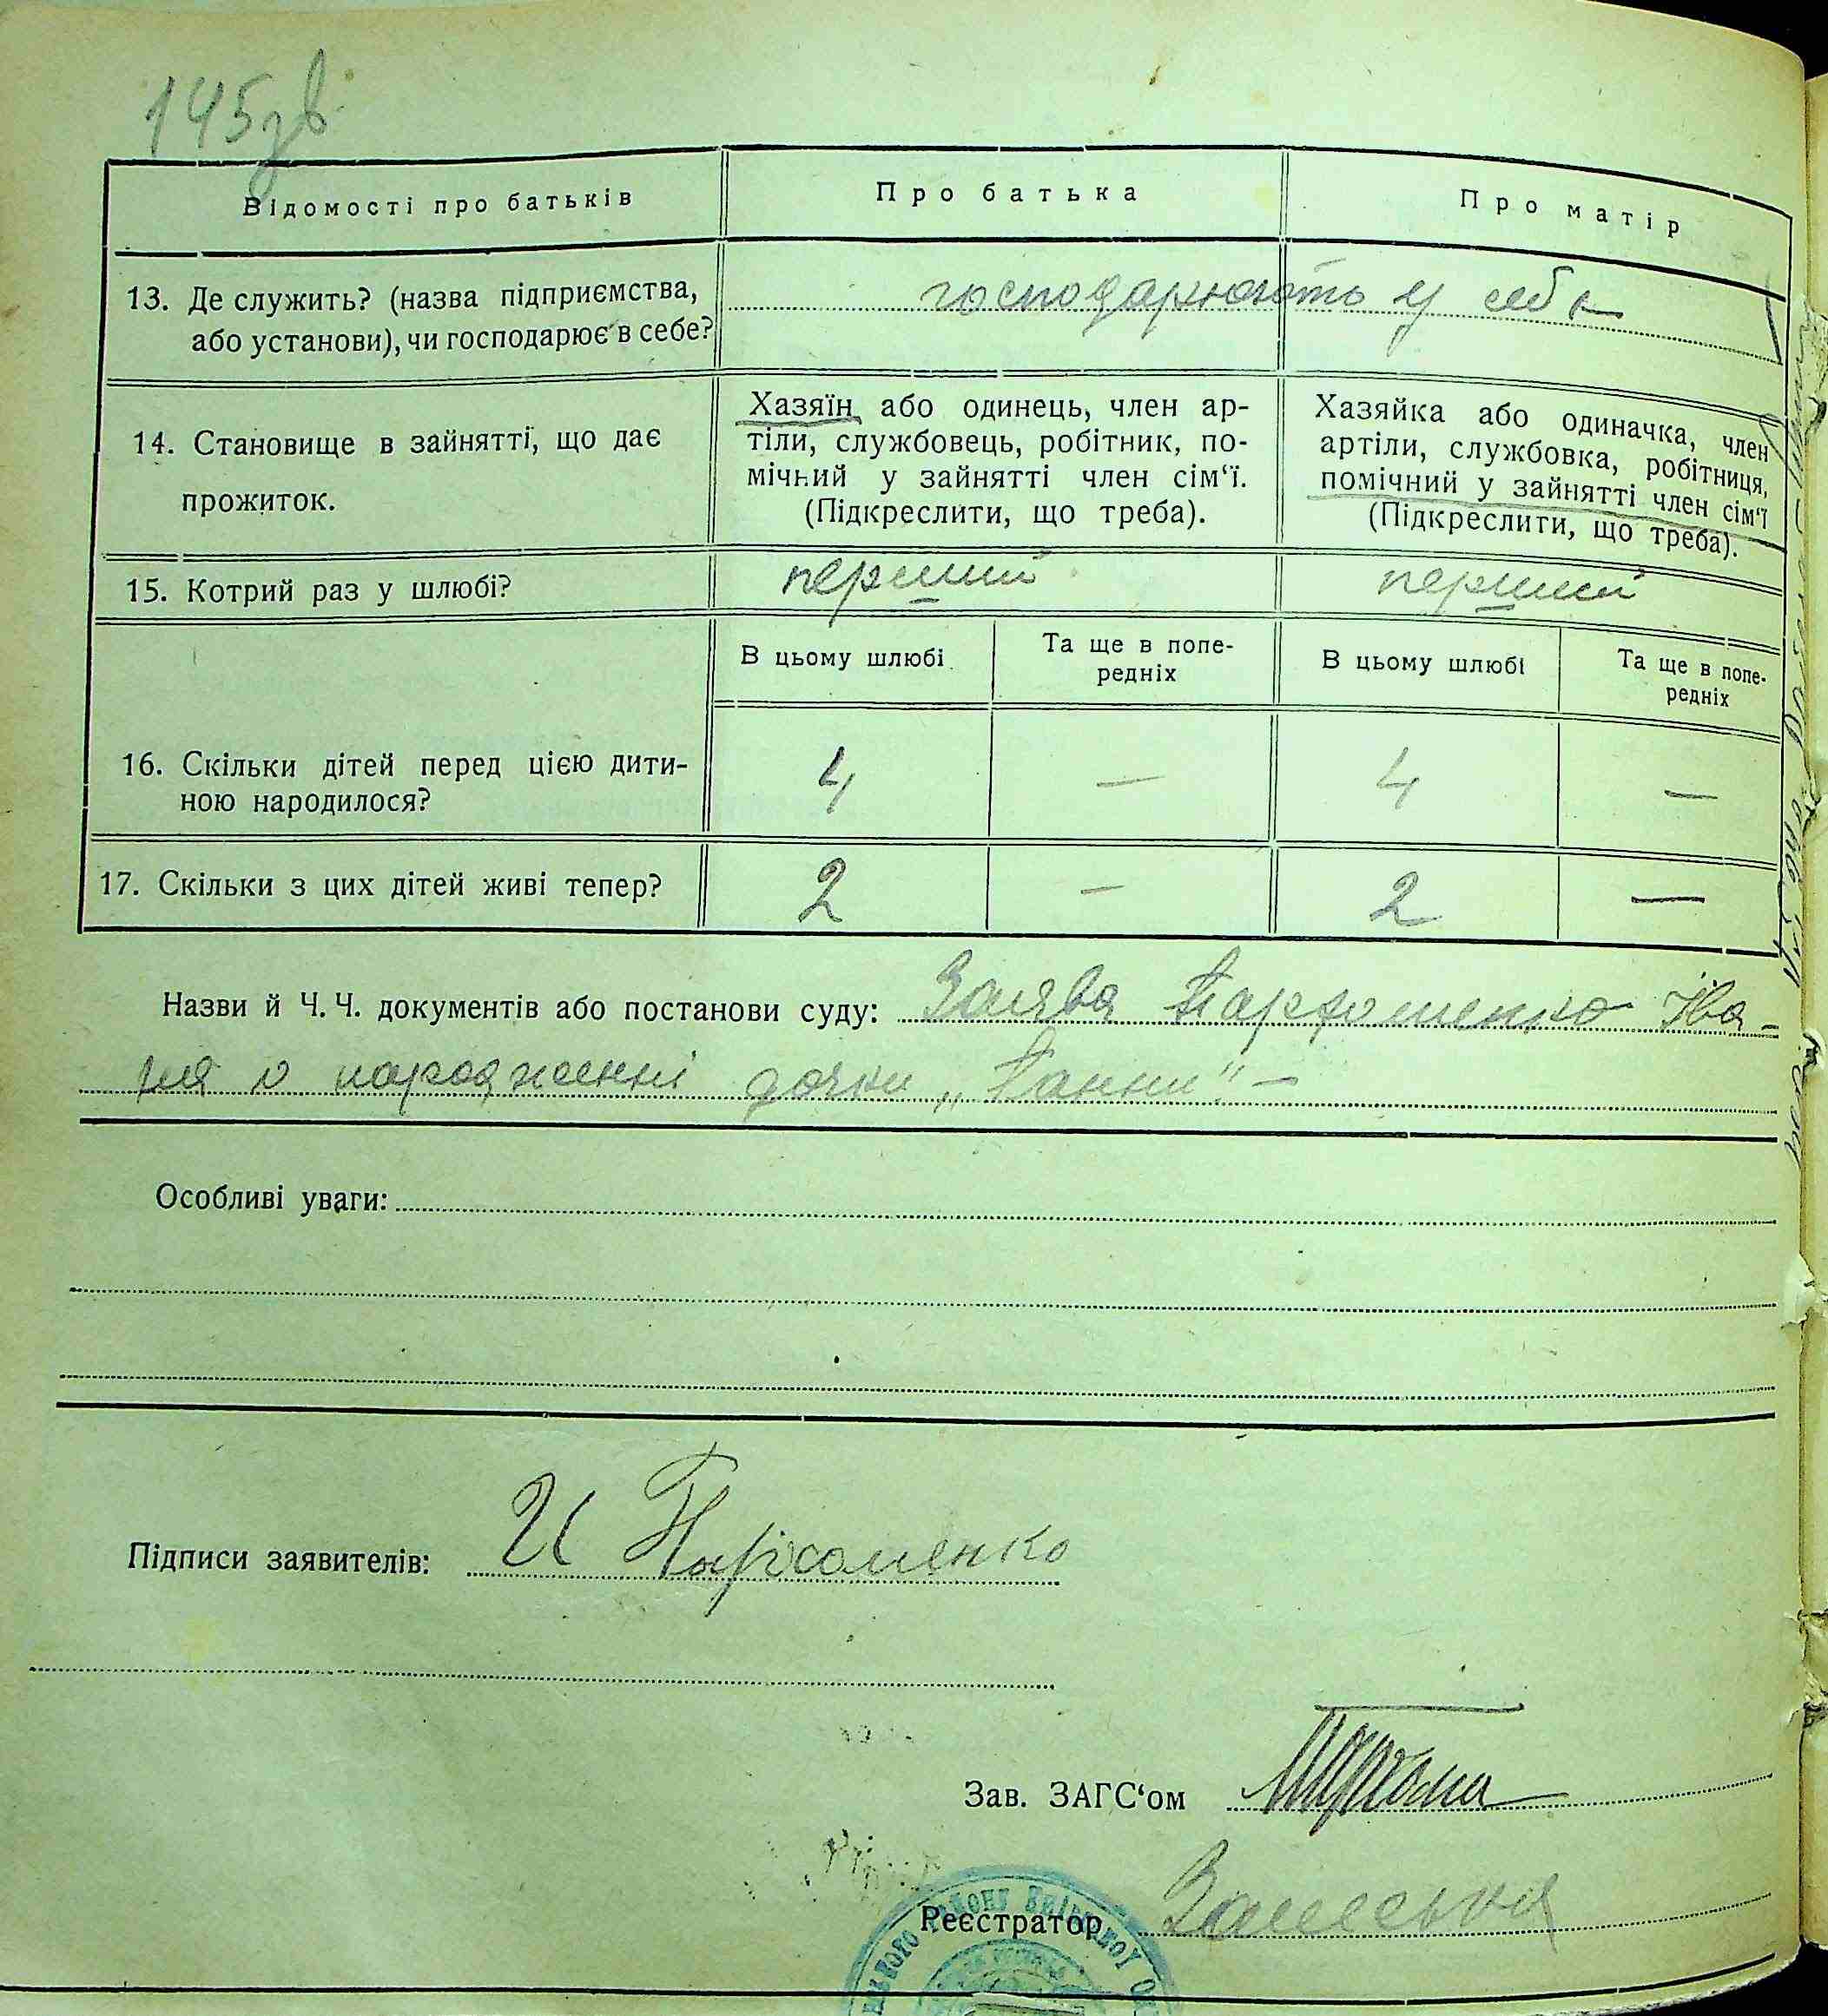 145зв
Відомості про батьків
Про батька
Про матір
13. Де служить? (назва підприємства,
або установи), чи господарює в себе?
господарюють у себе
14. Становище в зайнятті, що дає
прожиток.
Хазяїн або одинець, член ар-
тіли, службовець, робітник, по-
мічний у зайнятті член сім‘ї.
(Підкреслити, що треба).
Хазяйка або одиначка, член
артіли, службовка, робітниця,
помічний у зайнятті член сім‘ї
(Підкреслити, що треба).
15. Котрий раз у шлюбі?
перший
перший
В цьому шлюбі
Та ще в попе-
редніх
В цьому шлюбі
Та ще в попе-
редніх
16. Скільки дітей перед цією дити-
ною народилося?
4
—
4
—
17. Скільки з цих дітей живі тепер?
2
—
2
—
Назви й Ч. Ч. документів або постанови суду: Заява Пархоменко Іва-
на о народженні дочки „Ганни“ —
Особливі уваги:
Підписи заявителів: И Пархоменко
Зав. ЗАГС‘ом
Реєстратор